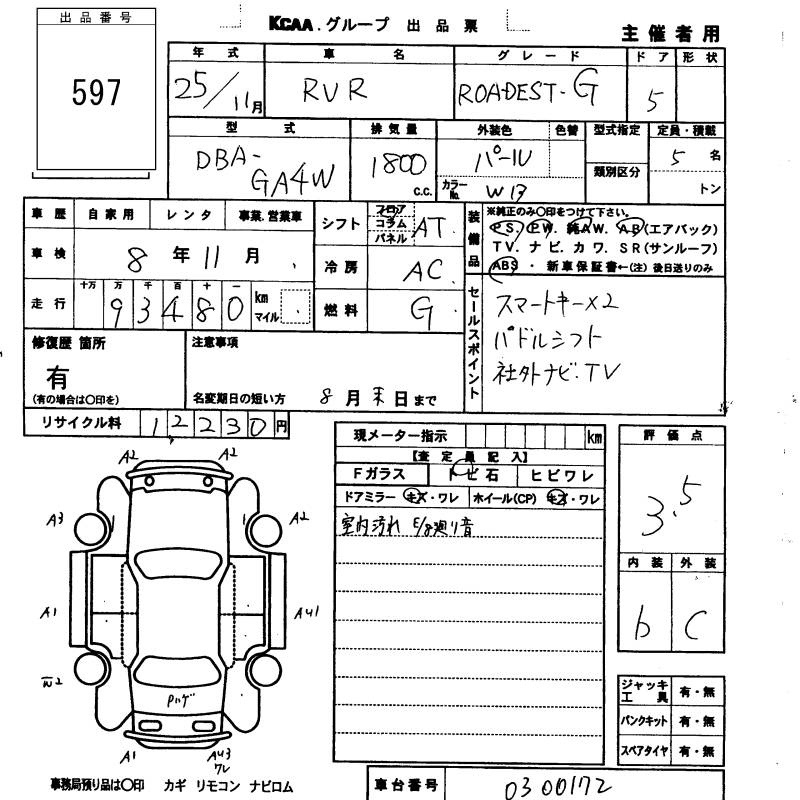 出品番号
597
KCAA.グループ 出品票
主催者用
年式 車名 グレード ドア 形状
25/11月 RVR ROADEST-G 5
型式 排気量 外装色 色替 型式指定 定員・積載
DBA-GA4W 1800 c.c. パール 類別区分 5名
カラーNo. W13 トン
車歴 自家用 レンタ 事業.営業車
車検 8年11月.
走行 十万 万 千 百 十 一
93480 km マイル
シフト フロア コラム パネル AT
冷房 AC
燃料 G
装備品
※純正のみ○印をつけて下さい。
PS. PW. 純AW. AB(エアバック)
TV. ナビ. カワ. SR(サンルーフ)
ABS ・ 新車保証書←(注) 後日送りのみ
セールスポイント
スマートキー×2
パドルシフト
社外ナビ.TV
修復歴 箇所
有
(有の場合は○印を)
注意事項
名変期日の短い方 8月末日まで
リサイクル料 12230円
現メーター指示 km
【査定員記入】
Fガラス トビ石 ヒビワレ
ドアミラー キズ・ワレ ホイール(CP) キズ・ワレ
室内汚れ E/g廻り音
評価点
3.5
内装 外装
b C
A2 A2
A3 A2
A1 AU1
W2
Pハゲ
A1 AU3
ワレ
ジャッキ工具 有・無
パンクキット 有・無
スペアタイヤ 有・無
事務局預り品は○印 カギ リモコン ナビロム
車台番号 0300172